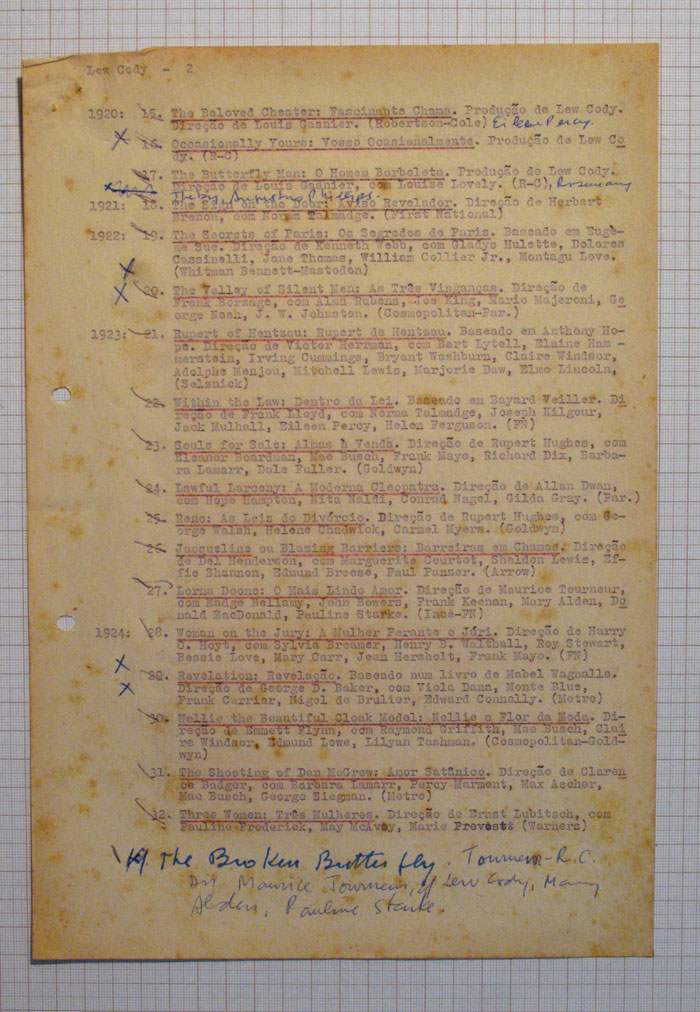 Lew Cody - 2
1920: 15. The Beloved Cheater: Fascinante Chama. Produção de Lew Cody.
Direção de Louis Gasnier. (Robertson-Cole) Eileen Percy.
16. Occasionally Yours: Vosso Ocasionalmente. Produção de Lew Co
dy. (R-C)
17. The Butterfly Man: O Homem Borboleta. Produção de Lew Cody.
Direção de Louis Gasnier, com Louise Lovely. (R-C), Rosemary
Theby,
1921: 18. The Sign on the Door: Aviso Revelador. Direção de Herbert
Brenon, com Norma Talmadge. (First National)
1922: 19. The Secrets of Paris: Os Segredos de Paris. Baseado em Eugè-
ne Sue. Direção de Kenneth Webb, com Gladys Hulette, Dolores
Cassinelli, Jane Thomas, William Collier Jr., Montagu Love.
(Whitman Bennett-Mastodon)
20. The Valley of Silent Men: As Três Vinganças. Direção de
Frank Borzage, com Alma Rubens, Joe King, Mario Majeroni, Ge
orge Nash, J. W. Johnston. (Cosmopolitan-Par.)
1923: 21. Rupert of Hentzau: Rupert de Hentzau. Baseado em Anthony Ho-
pe. Direção de Victor Herrman, com Bert Lytell, Elaine Ham -
merstein, Irving Cummings, Bryant Washburn, Claire Windsor,
Adolphe Menjou, Mitchell Lewis, Marjorie Daw, Elmo Lincoln,
(Selznick)
22. Within the Law: Dentro da Lei. Baseado em Bayard Veiller. Di
reção de Frank Lloyd, com Norma Talmadge, Joseph Kilgour,
Jack Mulhall, Eileen Percy, Helen Ferguson. (FN)
23. Souls for Sale: Almas à Venda. Direção de Rupert Hughes, com
Eleanor Boardman, Mae Busch, Frank Mayo, Richard Dix, Barba-
ra Lamarr, Dale Fuller. (Goldwyn)
24. Lawful Larceny: A Moderna Cleopatra. Direção de Allan Dwan,
com Hope Hampton, Nita Naldi, Conrad Nagel, Gilda Gray. (Par.)
25. Reno: As Leis do Divórcio. Direção de Rupert Hughes, com Ge-
orge Walsh, Helene Chadwick, Carmel Myers. (Goldwyn)
26. Jacqueline ou Blazing Barriers: Barreiras em Chamas. Direção
de Del Henderson, com Marguerite Courtot, Sheldon Lewis, Ef-
fie Shannon, Edmund Breese, Paul Panzer. (Arrow)
27. Lorna Doone: O Mais Lindo Amor. Direção de Maurice Tourneur,
com Madge Bellamy, John Bowers, Frank Keenan, Mary Alden, Do
nald MacDonald, Pauline Starke. (Ince-FN)
1924: 28. Woman on the Jury: A Mulher Perante o Júri. Direção de Harry
O. Hoyt, com Sylvia Breamer, Henry B. Walthall, Roy Stewart,
Bessie Love, Mary Carr, Jean Hersholt, Frank Mayo. (FN)
29. Revelation: Revelação. Baseado num livro de Mabel Wagnalls.
Direção de George D. Baker, com Viola Dana, Monte Blue,
Frank Currier, Nigel de Brulier, Edward Connelly. (Metro)
30. Nellie the Beautiful Cloak Model: Nellie a Flor da Moda. Di-
reção de Emmett Flynn, com Raymond Griffith, Mae Busch, Clai
re Windsor, Edmund Lowe, Lilyan Tashman. (Cosmopolitan-Gold-
wyn)
31. The Shooting of Dan McGrew: Amor Satânico. Direção de Claren
ce Badger, com Barbara Lamarr, Percy Marmont, Max Ascher,
Mae Busch, George Siegman. (Metro)
32. Three Women: Três Mulheres. Direção de Ernst Lubitsch, com
Pauline Frederick, May McAvoy, Marie Prevost (Warners)
The Broken Butterfly. Tourneur-R.C.
Dir. Maurice Tourneur, c/ Lew Cody, Mary
Alden, Pauline Starke.